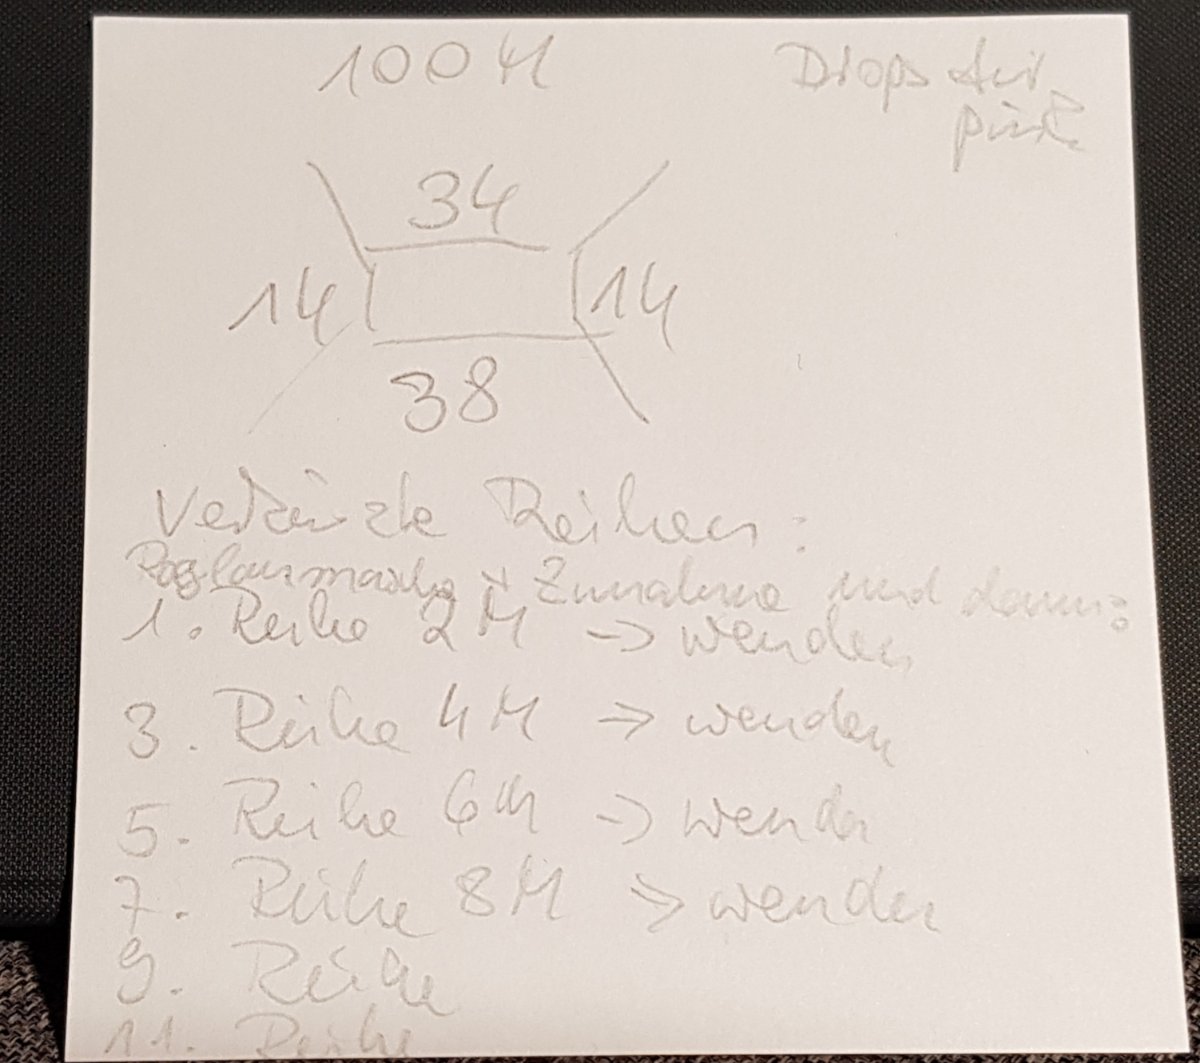 100 M
Drops Air
pink
34
14
14
38
Verkürzte Reihen:
Raglanmasche + Zunahme und dann:
1. Reihe 2 M -> wenden
3. Reihe 4 M -> wenden
5. Reihe 6 M -> wenden
7. Reihe 8 M -> wenden
9. Reihe
11. Reihe